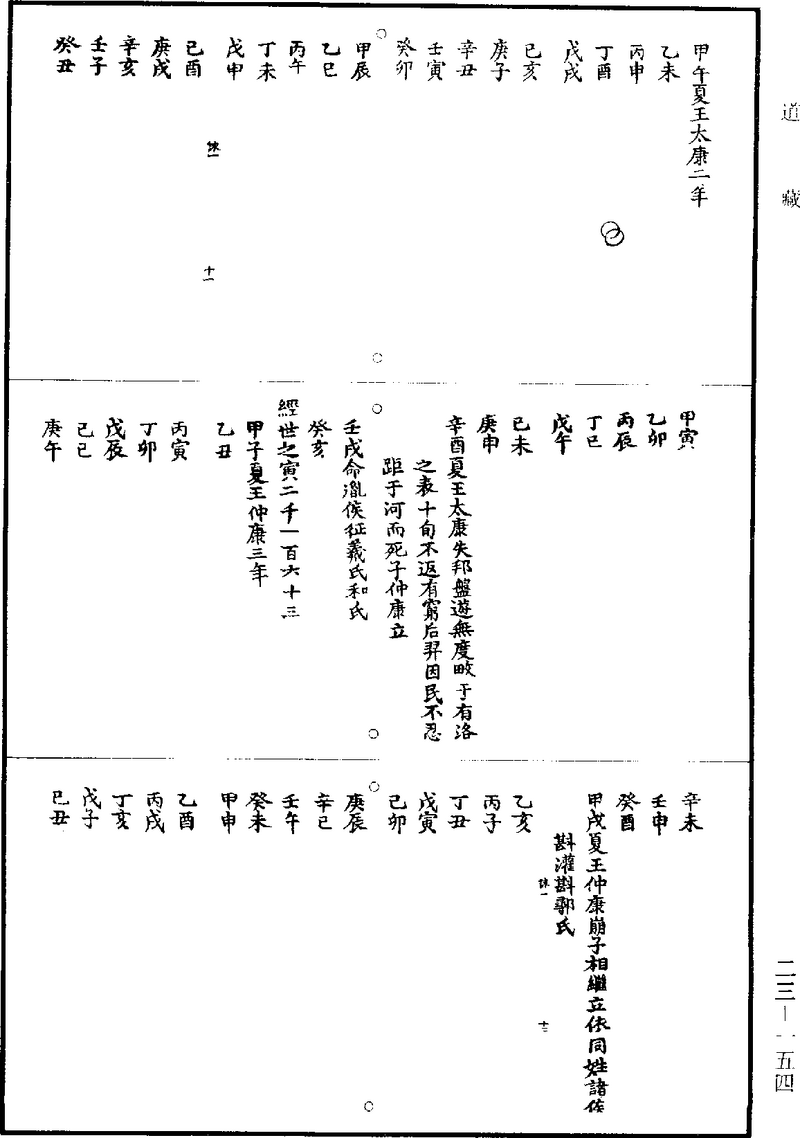 道藏
甲午夏王太康二年
乙未
丙申
丁酉
戊戌
己亥
庚子
辛丑
壬寅
癸卯
甲辰
乙巳
丙午
丁未
戊申
己酉
庚戌
辛亥
壬子
癸丑
十一
甲寅
乙卯
丙辰
丁巳
戊午
己未
庚申
辛酉夏王太康失邦盤遊無度畋于有洛
之表十旬不返有窮后羿因民不忍
距于河而死子仲康立
壬戌命胤侯征羲氏和氏
癸亥
經世之寅二千一百六十三
甲子夏王仲康三年
乙丑
丙寅
丁卯
戊辰
己巳
庚午
辛未
壬申
癸酉
甲戌夏王仲康崩子相繼立依同姓諸侯
斟灌斟鄩氏
乙亥
丙子
丁丑
戊寅
己卯
庚辰
辛巳
壬午
癸未
甲申
乙酉
丙戌
丁亥
戊子
己丑
二三—一五四